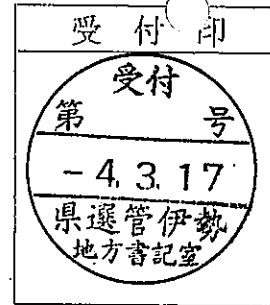 受付印
受付
第 号
-4.3.17
県選管伊勢
地方書記室